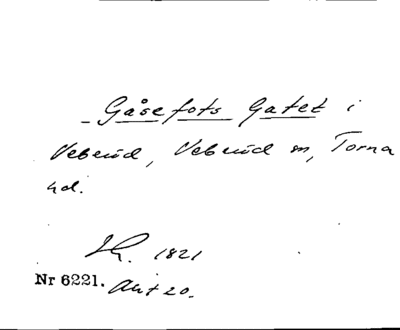 Gåsefots Gatet i
Veberöd, Veberöd sn, Torna
hd.
1821
Nr 6221. Akt 20.